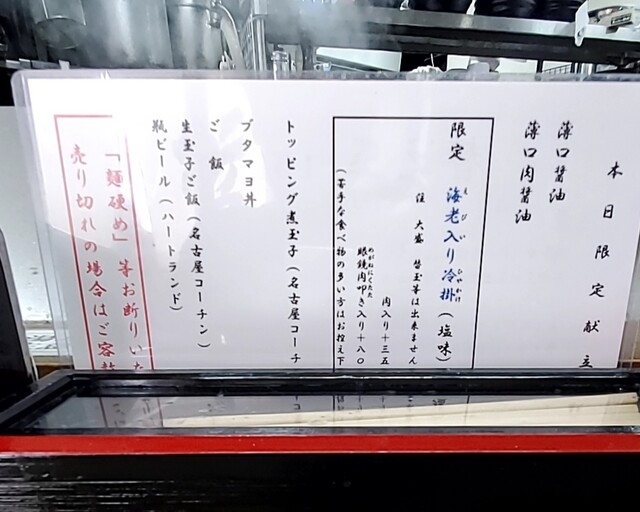 本日限定献立
薄口醤油
薄口肉醤油
限定 海老入り冷掛(塩味)
えび い ひやかけ
注 大盛 替玉等は出来ません
肉入り十三五
眼鏡肉叩き入り十八〇
めがねにくたた
(苦手な食べ物の多い方はお控え下
トッピング煮玉子(名古屋コーチ
ブタマヨ丼
ご飯
生玉子ご飯(名古屋コーチン)
瓶ビール(ハートランド)
「麺硬め」等お断りいた
売り切れの場合はご容赦